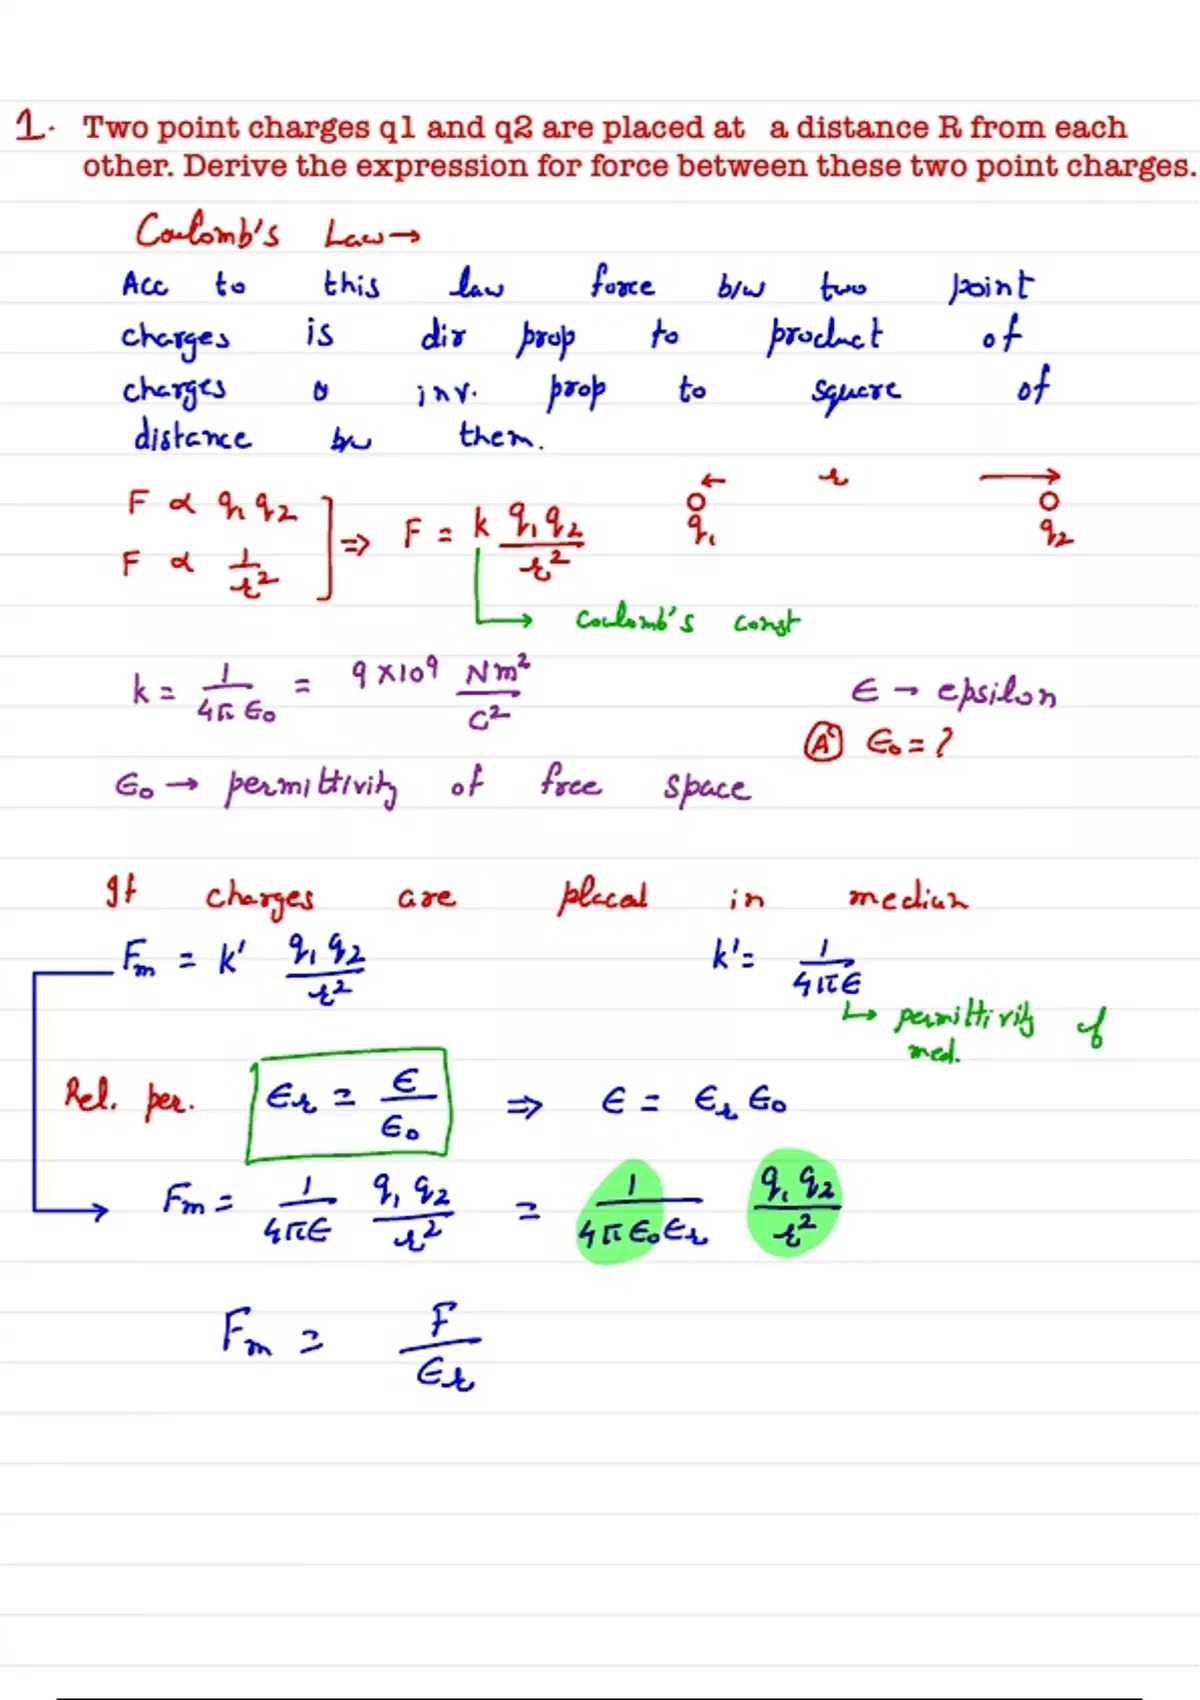 1. Two point charges q1 and q2 are placed at a distance R from each
other. Derive the expression for force between these two point charges.
Coulomb's Law →
Acc to this law force b/w two point
charges is dir prop to product of
charges & inv. prop to square of
distance bw them.
F ∝ q₁ q₂
F ∝ 1/r² ] ⇒ F = k q₁q₂/r²
← r →
q₁ q₂
→ Coulomb's const
k = 1/4π ε₀ = 9 × 10⁹ Nm²/C²
ε → epsilon
A ε₀ = ?
ε₀ → permittivity of free space
If charges are placed in medium
Fm = k' q₁ q₂/r² k' = 1/4πε
↳ permittivity of
med.
Rel. per. εr = ε/ε₀ ⇒ ε = εr ε₀
→ Fm = 1/4πε q₁ q₂/r² = 1/4π ε₀ εr q₁ q₂/r²
Fm = F/εr